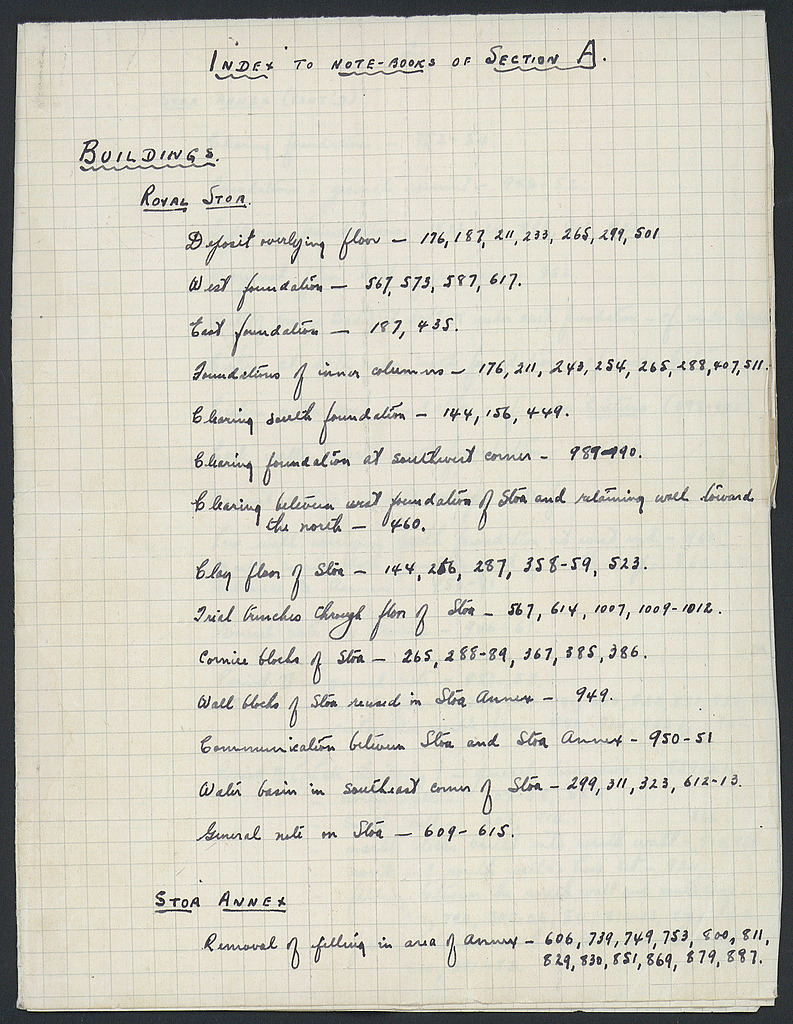 INDEX TO NOTE-BOOKS OF SECTION A.
BUILDINGS.
ROYAL STOA.
Deposit overlying floor — 176, 187, 211, 233, 265, 299, 501
West foundation — 567, 573, 587, 617.
East foundation — 187, 435.
Foundations of inner columns — 176, 211, 243, 254, 265, 288, 407, 511.
Clearing south foundation — 144, 156, 449.
Clearing foundation at southwest corner — 989-990.
Clearing between west foundation of Stoa and retaining wall toward
the north — 460.
Clay floor of Stoa — 144, 266, 287, 358-59, 523.
Trial trenches through floor of Stoa — 567, 614, 1007, 1009-1012.
Cornice blocks of Stoa — 265, 288-89, 367, 385, 386.
Wall blocks of Stoa reused in Stoa Annex — 949.
Communication between Stoa and Stoa Annex — 950-51
Water basin in southeast corner of Stoa — 299, 311, 323, 612-13.
General note on Stoa — 609-615.
STOA ANNEX
Removal of filling in area of Annex — 606, 739, 749, 753, 800, 811,
829, 830, 851, 869, 879, 887.